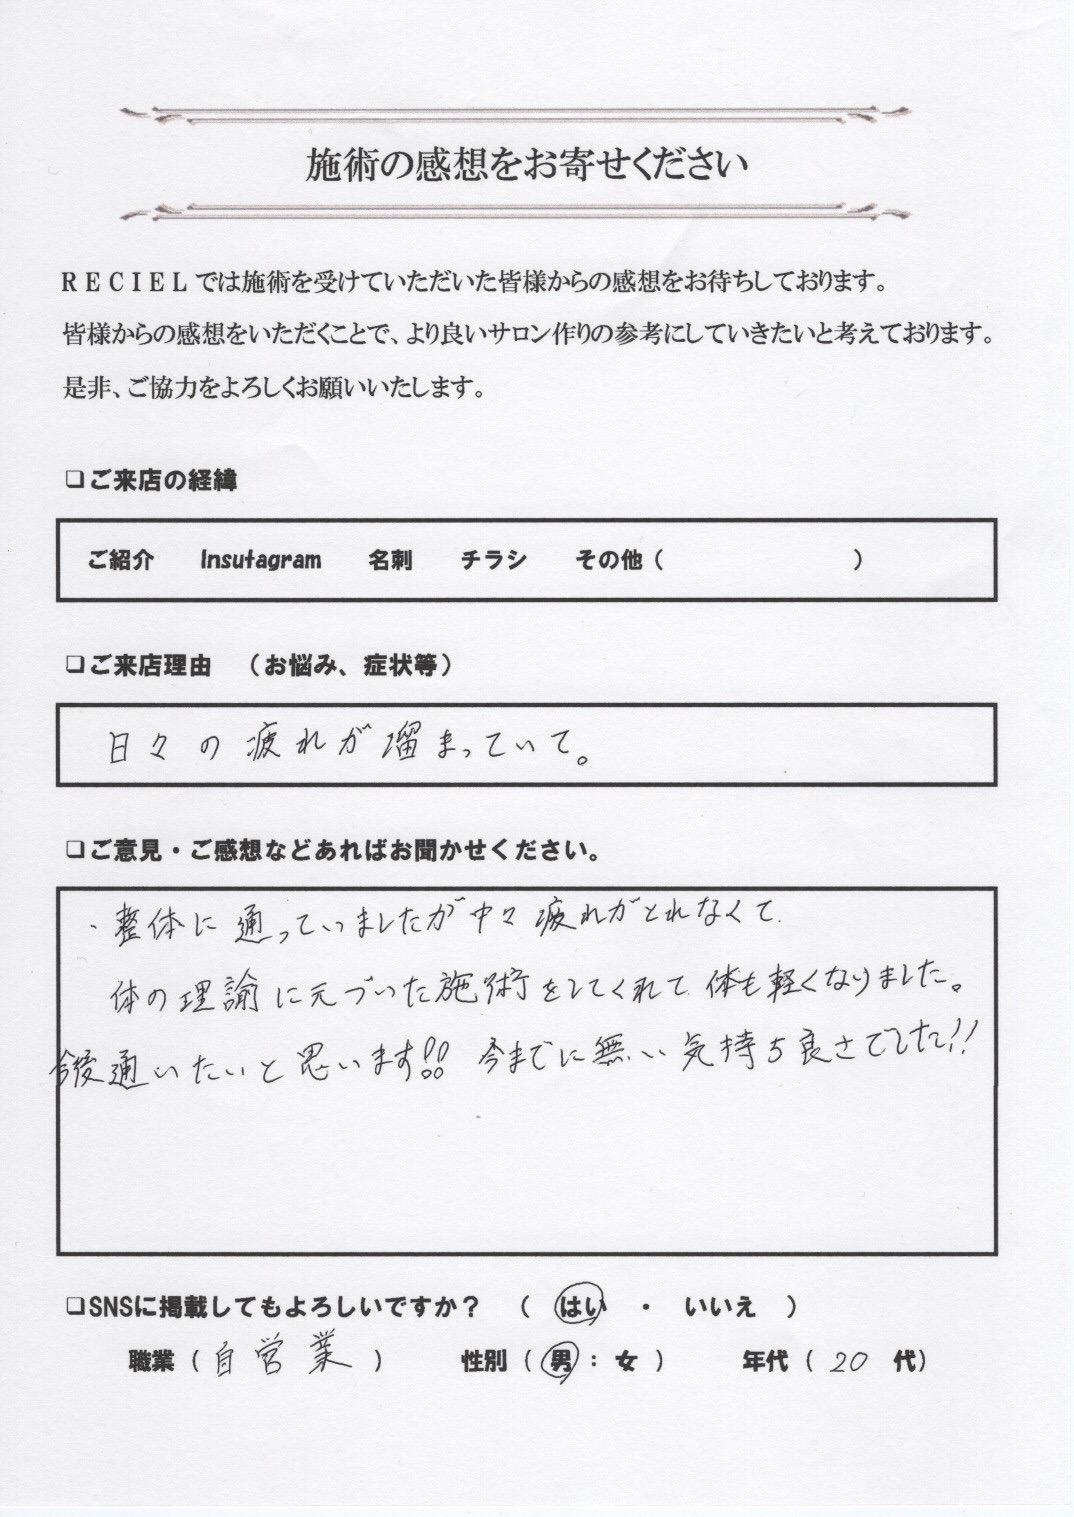 施術の感想をお寄せください
RECIELでは施術を受けていただいた皆様からの感想をお待ちしております。
皆様からの感想をいただくことで、より良いサロン作りの参考にしていきたいと考えております。
是非、ご協力をよろしくお願いいたします。
❏ご来店の経緯
ご紹介 Insutagram 名刺 チラシ その他（ ）
❏ご来店理由 （お悩み、症状等）
日々の疲れが溜まっていて。
❏ご意見・ご感想などあればお聞かせください。
・整体に通っていましたが中々疲れがとれなくて、
体の理論に元づいた施術をしてくれて、体も軽くなりました。
今後通いたいと思います!! 今までに無い気持ち良さでした!!
❏SNSに掲載してもよろしいですか？ （ はい ・ いいえ ）
職業（ 自営業 ） 性別（ 男 ： 女 ） 年代（ 20 代）